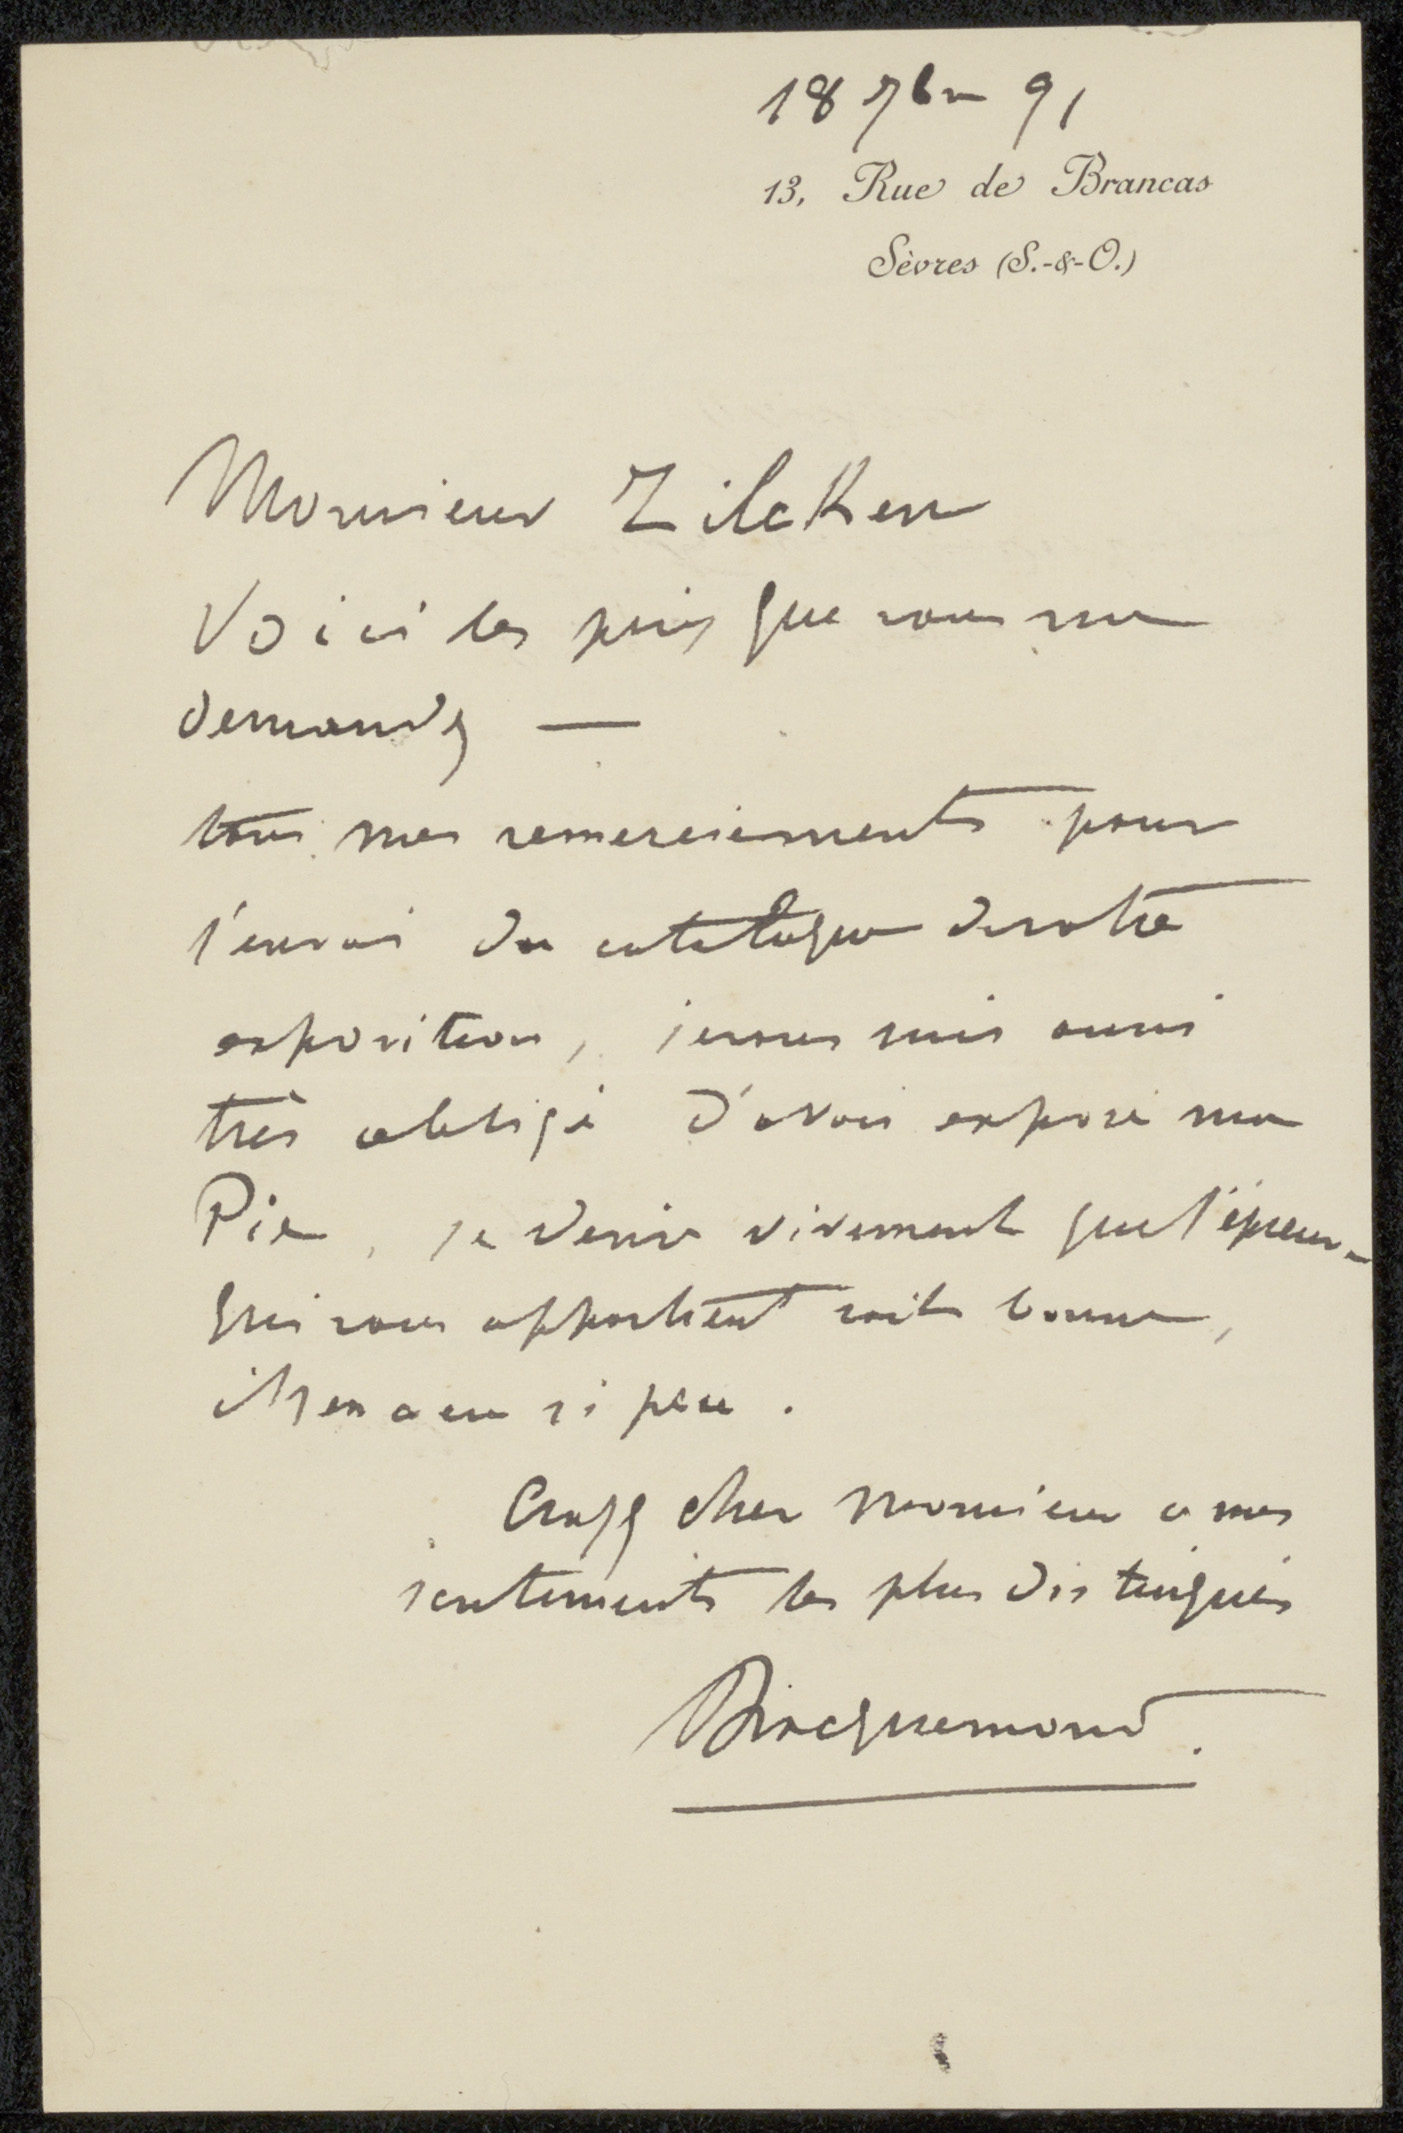 18 7bre 91
13, Rue de Brancas
Sèvres (S.-&-O.)
Monsieur Zilcken
Voici les prix que vous me
demandez —
tous mes remerciements pour
l'envoi du catalogue de votre
exposition, je vous suis aussi
très obligé d'avoir exposé ma
Pie, je désire vivement que l'épreuve
qui vous appartient soit bonne,
il y en a eu si peu.
Croyez cher Monsieur a mes
sentiments les plus distingués
Bracquemond.